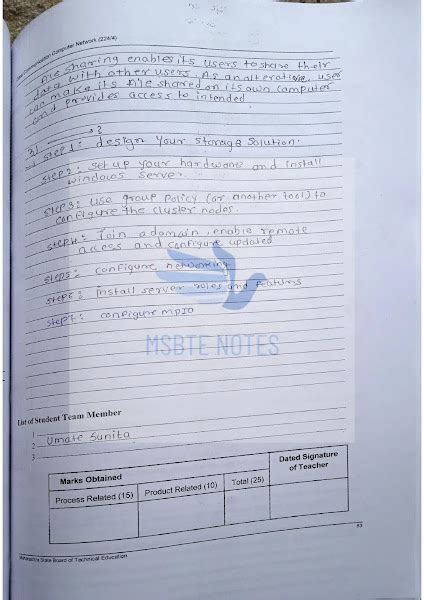 Data Communication Computer Network (22414)
file sharing enables its users to share their
data with other users. As an alterative, user
can make its file shared on its own computer
and provides access to intended
3) → ?
step1: design your storage solution.
step2: set up your hardware and install
windows server.
step3: use group policy (or another tool) to
configure the cluster nodes.
step4: Join a domain, enable remote
access and configure updated
step5: configure networking
step6: install server roles and featurs
step7: configure mpio
MSBTE NOTES
List of Student Team Member
1
2 Umate Sunita
3
Marks Obtained
Dated Signature of Teacher
Process Related (15) Product Related (10) Total (25)
Maharashtra State Board of Technical Education